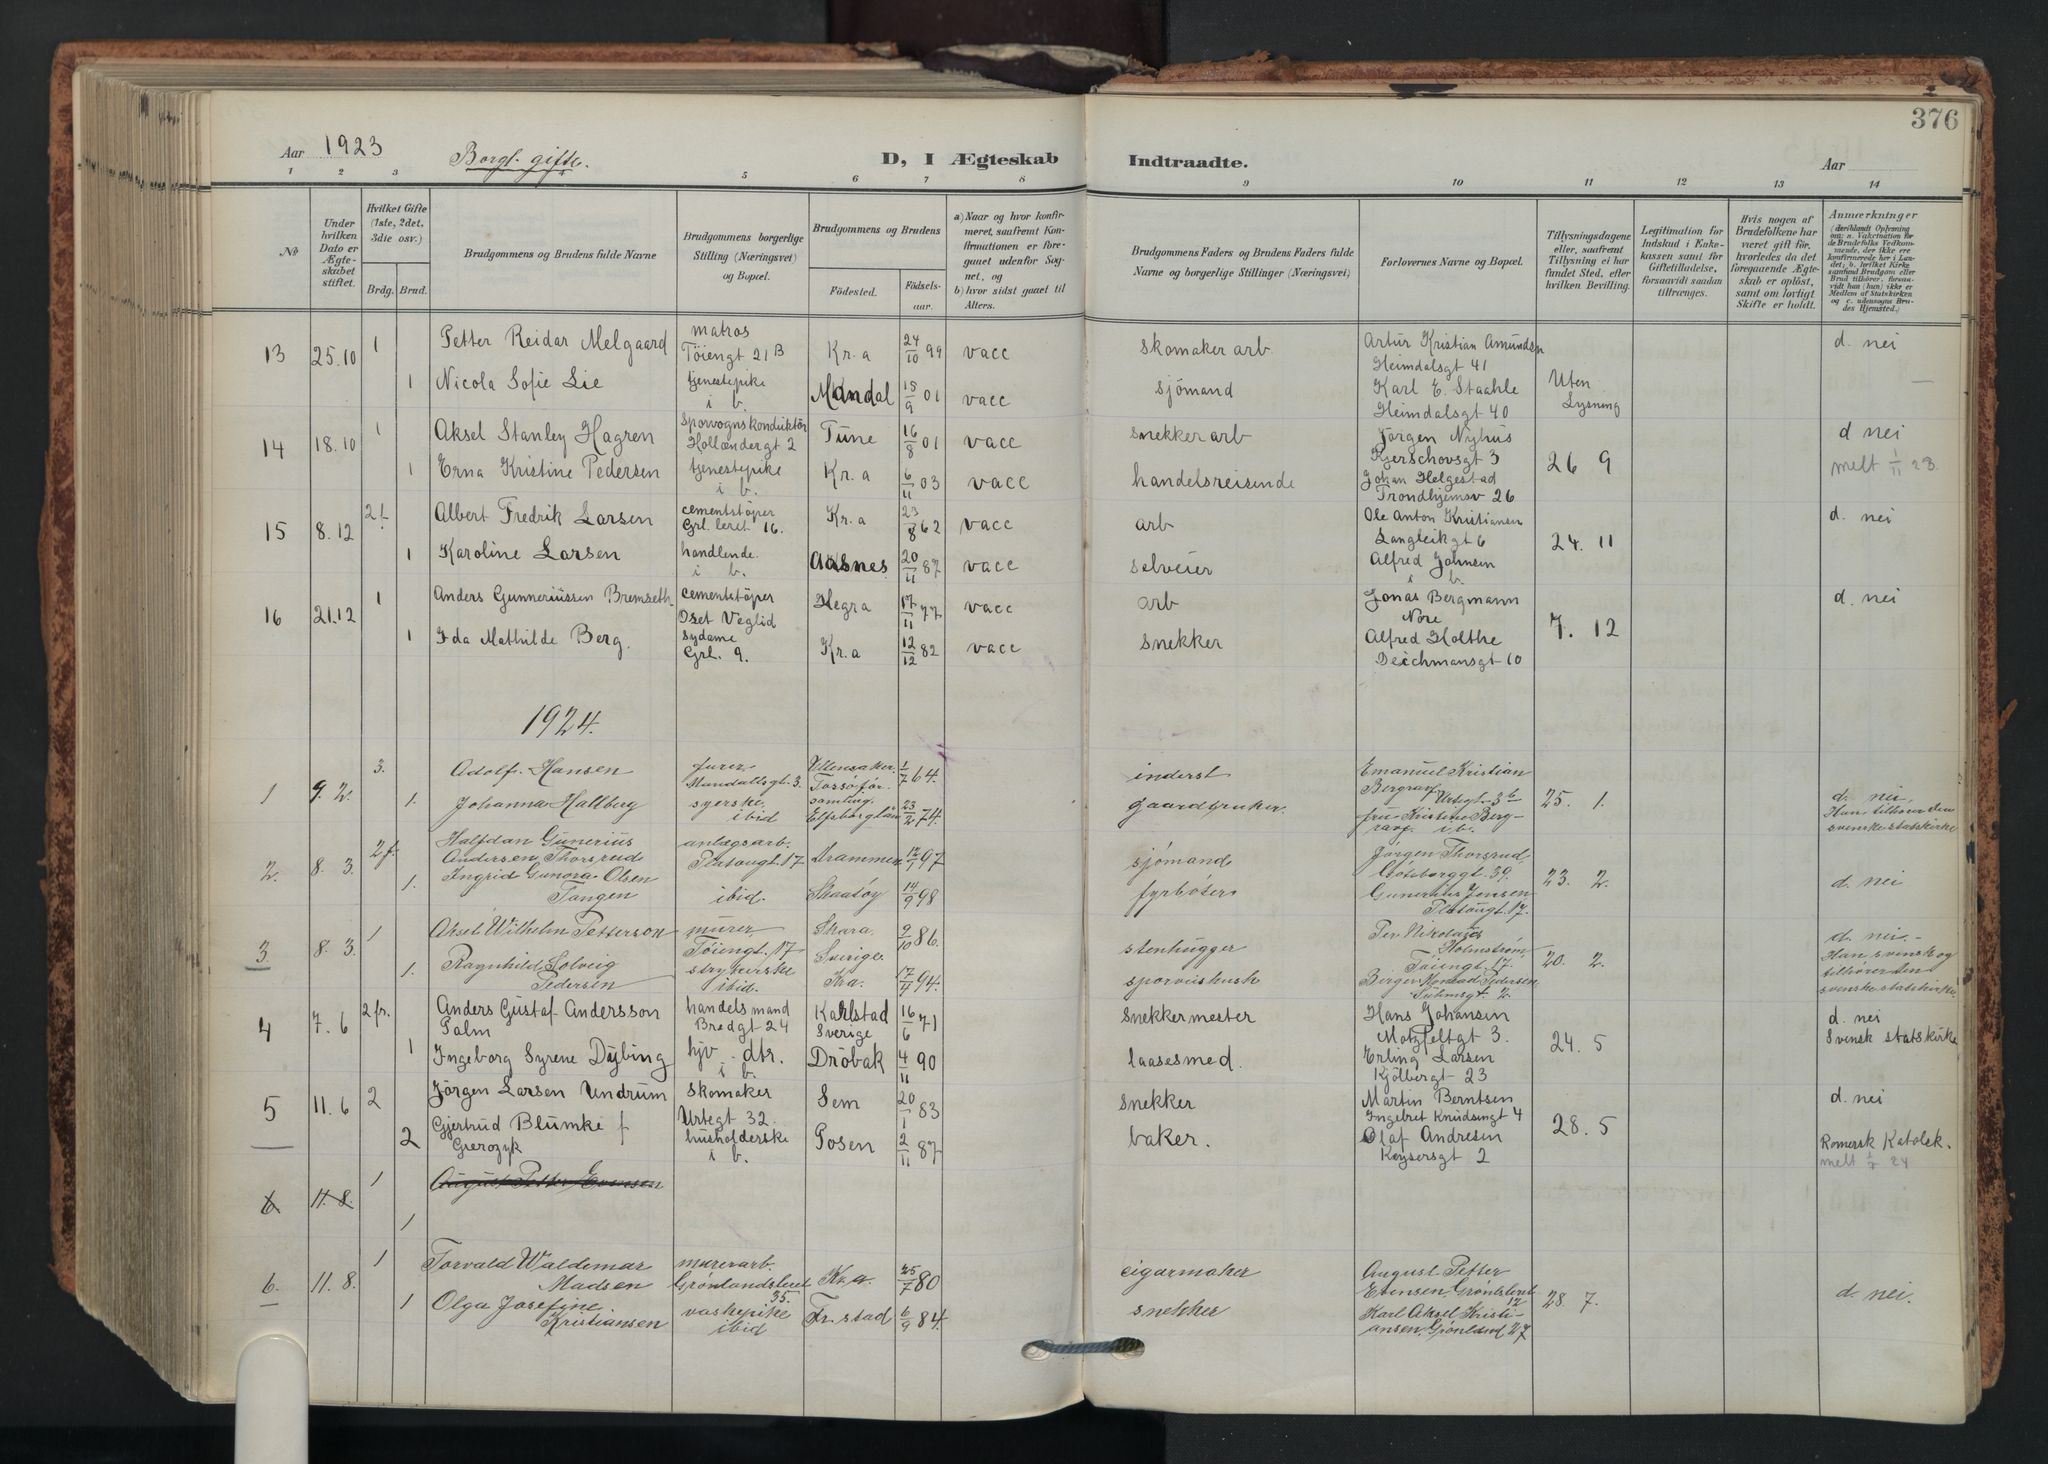 376
Aar 1923 Borgl. gifte. D, I Ægteskab Indtraadte. Aar
1 2 3 5 6 7 8 9 10 11 12 13 14
No
Under hvilken Dato er Ægteskabet stiftet.
Hvilket Gifte (1ste, 2det, 3die osv.)
Brdg. Brud.
Brudgommens og Brudens fulde Navne
Brudgommens borgerlige Stilling (Næringsvei) og Bopæl.
Brudgommens og Brudens
Födested. Födselsaar.
a) Naar og hvor konfirmeret, saafremt Konfirmationen er foregaaet udenfor Sognet, og
b) hvor sidst gaaet til Alters.
Brudgommens Faders og Brudens Faders fulde Navne og borgerlige Stillinger (Næringsvei)
Forlovernes Navne og Bopæl.
Tillysningsdagene eller, saafremt Tillysning ei har fundet Sted, efter hvilken Bevilling.
Legitimation for Indskud i Enkekassen samt for Giftetilladelse, forsaavidt saadan tiltrænges.
Hvis nogen af Brudefolkene har været gift før, hvorledes da det foregaaende Ægteskab er opløst, samt om lovligt Skifte er holdt.
Anmærkninger
(deriblandt Oplysning om: a. Vakcination for de Brudefolks Vedkommende, der ikke ere konfirmerede her i Landet; b. hvilket Kirkesamfund Brudgom eller Brud tilhører, forsaavidt han (hun) ikke er Medlem af Statskirken og c. udensogns Brudes Hjemsted.)
13 25.10 1 Petter Reidar Melgaard matros Töiengt 21 B Kr.a 24/10 99 vacc skomaker arb. Artur Kristian Amundsen Heimdalsgt 41 d. nei
1 Nicola Sofie Lie tjenestepike i b. Mandal 15/9 01 vacc sjömand Karl E. Staahle Heimdalsgt 40 Uten Lysning
14 18.10 1 Aksel Stanley Hagren Sporvognskonduktör Hollændergt 2 Tune 16/8 01 vacc snekker arb Jörgen Nyhus Kjerschovsgt 3 26 9 d nei
1 Erna Kristine Pedersen tjenestepike i b. Kr.a 6/11 03 vacc handelsreisende Johan Helgestad Trondhjemsv 26 melt 1/11 23.
15 8.12 2 f. Albert Fredrik Larsen cementstöper Grl. leret 16. Kr.a 23/8 62 vacc arb Ole Anton Kristiansen Langleikgt 6 24. 11 d. nei
1 Karoline Larsen handlende. i b. Aasnes 20/11 87 vacc selveier Alfred Johnsen i b.
16 21.12 1 Anders Gunneriussen Bremseth cementstöper Oset Veglid Hegra 17/11 77 vacc arb Jonas Bergmann Nore 7. 12 d. nei
1 Ida Mathilde Berg. sydame Grl. 9. Kr.a 12/12 82 vacc snekker Alfred Holthe Deichmansgt 10
1924.
1 9. 2. 3. Adolf Hansen furer Mandallsgt. 3. Ullensaker 1/7 64. inderst Emanuel Kristian Bergrav Urtegt. 3 b 25. 1. d. nei.
1. Johanna Hallberg syerske ibid samling. Elfsborglän 23/2 74. gaardbruker. fru Kristine Bergrav i. b. Han tilhører den svenske statskirke
2. 8. 3. 2 f. Halfdan Gunerius Andersen Thorsrud anlægsarb. Platougt. 17 Drammen 12/1 97 sjømand Jörgen Thorsrud Göteborggt. 39. 23. 2. d. nei
1. Ingrid Gunora Olsen Tangen ibid. Skaatøy 14/9 98 fyrbøter Gunerius Jensen Platougt. 17.
3. 8. 3. 1 Aksel Wilhelm Petterson murer Töiengt. 17 Skara Sverige 9/10 86. stenhugger Per Nikolaus Holmström Töiengt. 17. 20. 2. d. nei.-
1. Ragnhild Solveig Pedersen strykerske ibid. Kra. 17/4 94. sporvishusk Birger Konrad Pedersen Suhmsgt. 2. Han svensk og tilhører den svenske statskirke.
4 7. 6 2 fr. Anders Gustaf Andersson Palm handelsmand Bredgt 24 Karlstad Sverige 16/6 71 snekkermester Hans Johansen Motzfeltgt 3. 24. 5 d. nei Svensk statskirke
1 Ingeborg Syrene Dybing hjv. dtr. i b. Dröbak 4/11 90 laasesmed. Erling Larsen Kjölbergt 23
5 11. 6 2 Jörgen Larsen Undrum skomaker Urtegt 32. Sem 20/1 83 snekker Martin Berntsen Ingebret Knudsengt 4 28. 5 d. nei
2 Gjertrud Blümke f husholderske i b. Posen 2/11 87 baker. Olaf Andresen Keysersgt 2 Romersk Katolek. melt 1/7 24
6 11. 8. 1 August Petter Evensen
1
6. 11. 8. 1 Torvald Waldemar Madsen murerarb. Grønlandsleret 35. Kra. 25/7 80 cigarmaker August Petter Evensen, Grønlsleret 12 28. 7. d. nei.
1 Olga Josefine Kristiansen vaskepike ibid Fr.stad 6/9 84. snekker Karl Aksel Kristiansen, 27